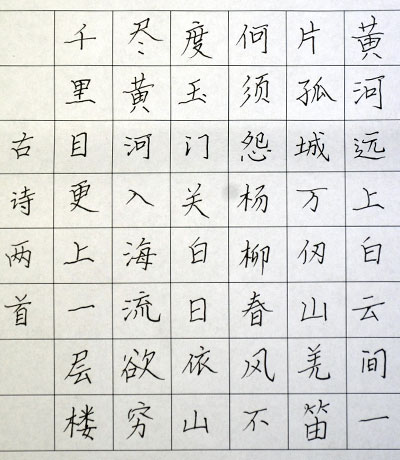 黄河远上白云间一
片孤城万仞山羌笛
何须怨杨柳春风不
度玉门关白日依山
尽黄河入海流欲穷
千里目更上一层楼
古诗两首